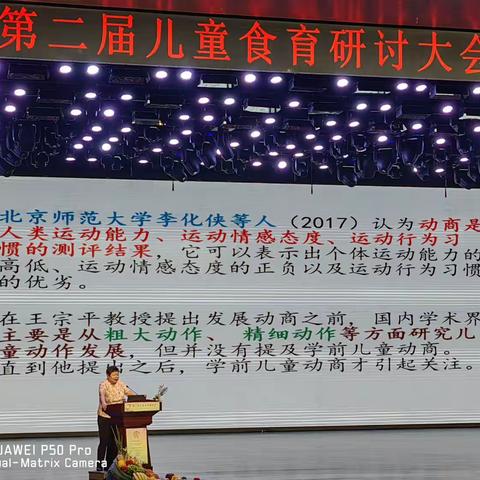 第二届儿童食育研讨大会
北京师范大学李化侠等人（2017）认为动商是
人类运动能力、运动情感态度、运动行为习
惯的测评结果，它可以表示出个体运动能力的
高低、运动情感态度的正负以及运动行为习惯
的优劣。
在王宗平教授提出发展动商之前，国内学术界
主要是从粗大动作、精细动作等方面研究儿
童动作发展，但并没有提及学前儿童动商。
直到他提出之后，学前儿童动商才引起关注。
HUAWEI P50 Pro
Dual-Matrix Camera